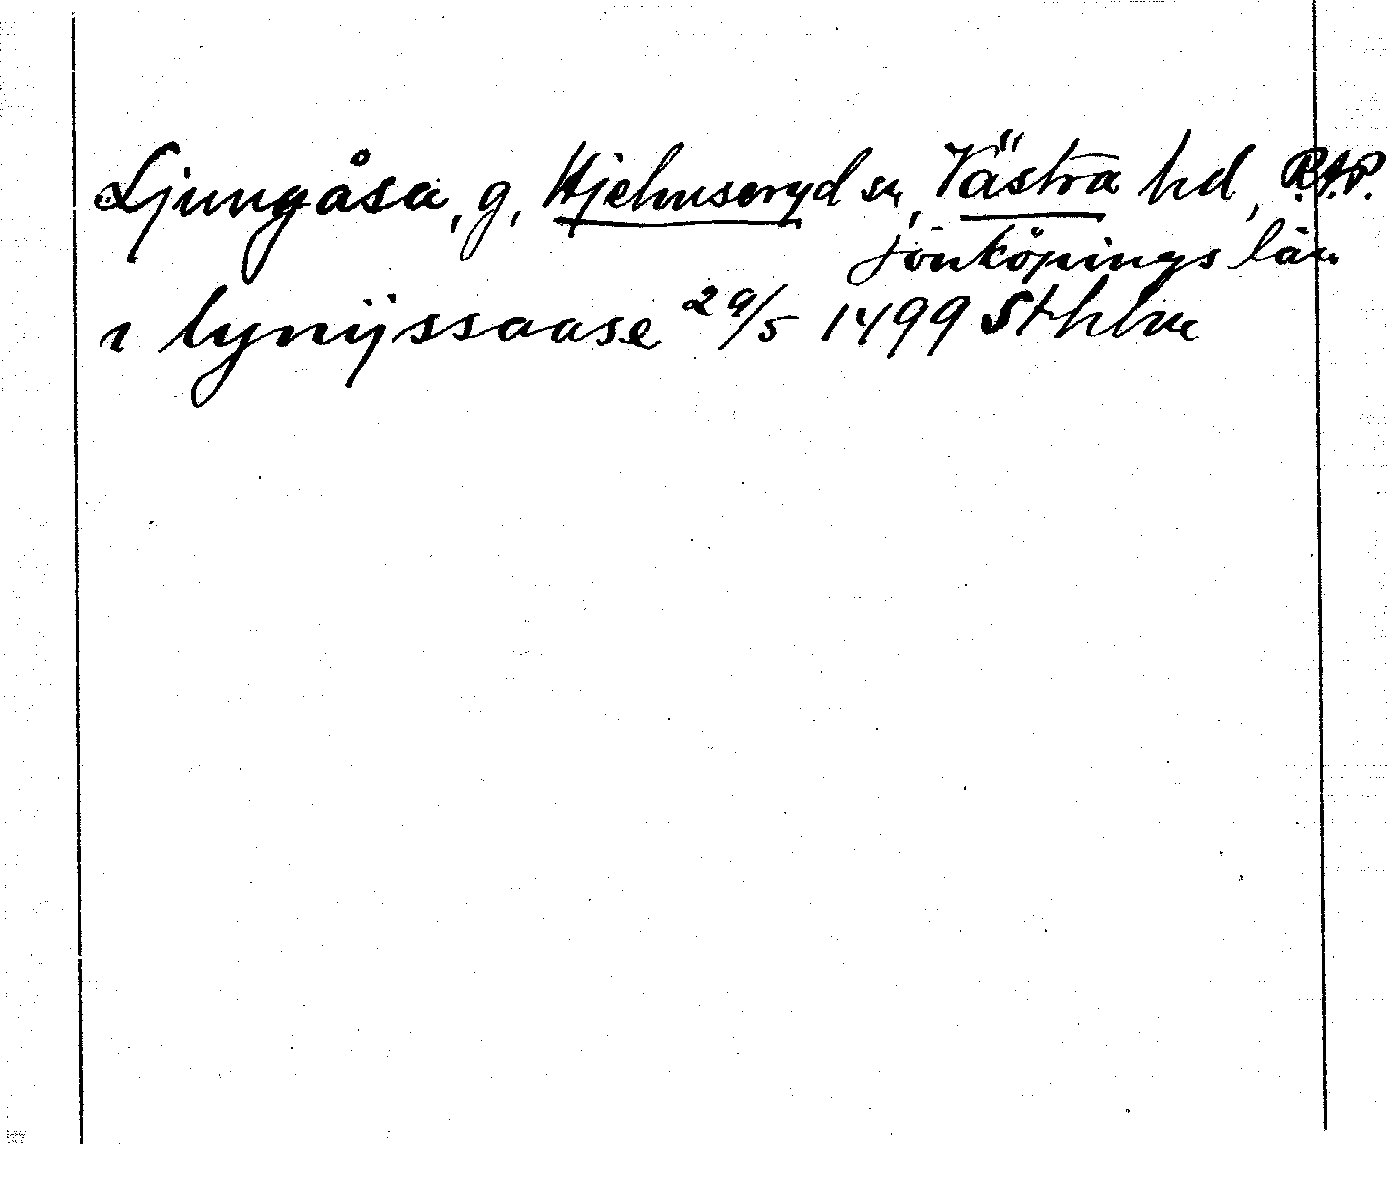 Ljungåsa, g, Hjelmseryd sn, Västra hd, R.A.P.
Jönköpings län
i lynijssaase 29/5 1499 Sthlm